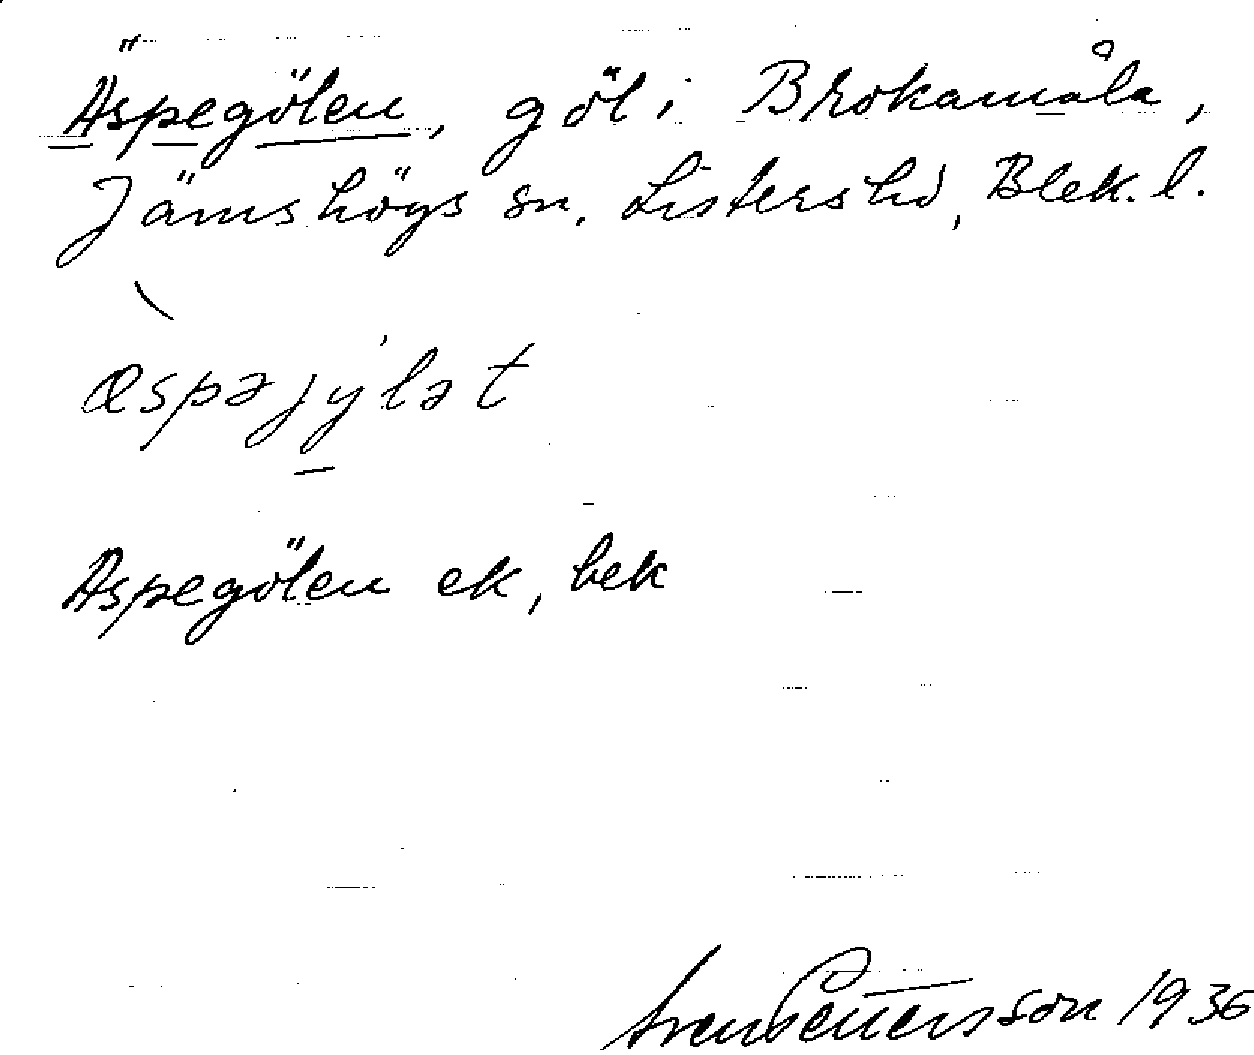 Äspegölen, göl i Brokamåla,
Jämshögs sn. Listers hd, Blek. l.
`æspəjy'lət
Aspegölen ek, bek
Sven Pettersson 1936